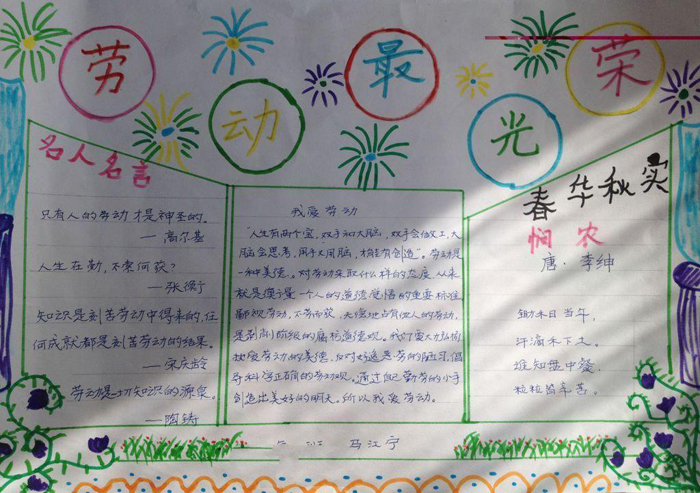 劳动最光荣
名人名言
只有人的劳动才是神圣的。
—高尔基
人生在勤,不索何获?
—张衡
知识是刻苦劳动中得来的,任
何成就都是刻苦劳动的结果。
—宋庆龄
劳动是一切知识的源泉。
—陶铸
我爱劳动
“人生有两个宝,双手和大脑,双手会做工,大
脑会思考,用手又用脑,才能有创造”。劳动是
一种美德。对劳动采取什么样的态度,从来
就是衡量一个人的道德觉悟的重要标准
鄙视劳动,不劳而获,无偿地占有他人的劳动,
是剥削阶级的腐朽道德观。我们要大力弘扬
热爱劳动的美德,反对好逸恶劳的陋习,倡
导科学正确的劳动观。通过自己勤劳的小手
创造出美好的明天。所以我爱劳动。
春华秋实
悯农
唐·李绅
锄禾日当午,
汗滴禾下土。
谁知盘中餐,
粒粒皆辛苦。
班 马江宁